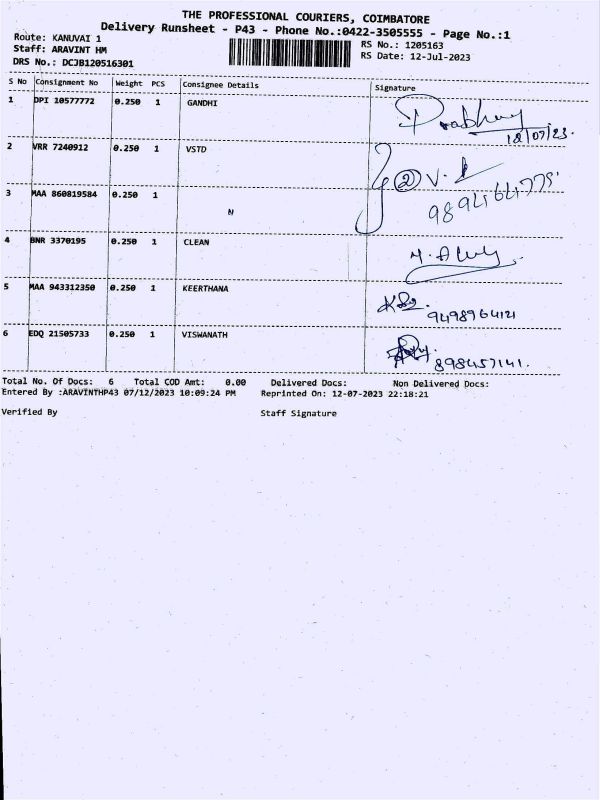 THE PROFESSIONAL COURIERS, COIMBATORE
Delivery Runsheet - P43 - Phone No.:0422-3505555 - Page No.:1
Route: KANUVAI 1
RS No.: 1205163
Staff: ARAVINT HM
RS Date: 12-Jul-2023
DRS No.: DCJB120516301
S No Consignment No Weight PCS Consignee Details Signature
1 DPI 10577772 0.250 1 GANDHI Prabhu
12/07/23.
2 VRR 7240912 0.250 1 VSTD
2 V.
3 MAA 860819584 0.250 1
N
4 BNR 3370195 0.250 1 CLEAN
5 MAA 943312350 0.250 1 KEERTHANA
9498964121
6 EDQ 21505733 0.250 1 VISWANATH
898457141.
Total No. Of Docs: 6 Total COD Amt: 0.00 Delivered Docs: Non Delivered Docs:
Entered By :ARAVINTHP43 07/12/2023 10:09:24 PM Reprinted On: 12-07-2023 22:18:21
Verified By Staff Signature